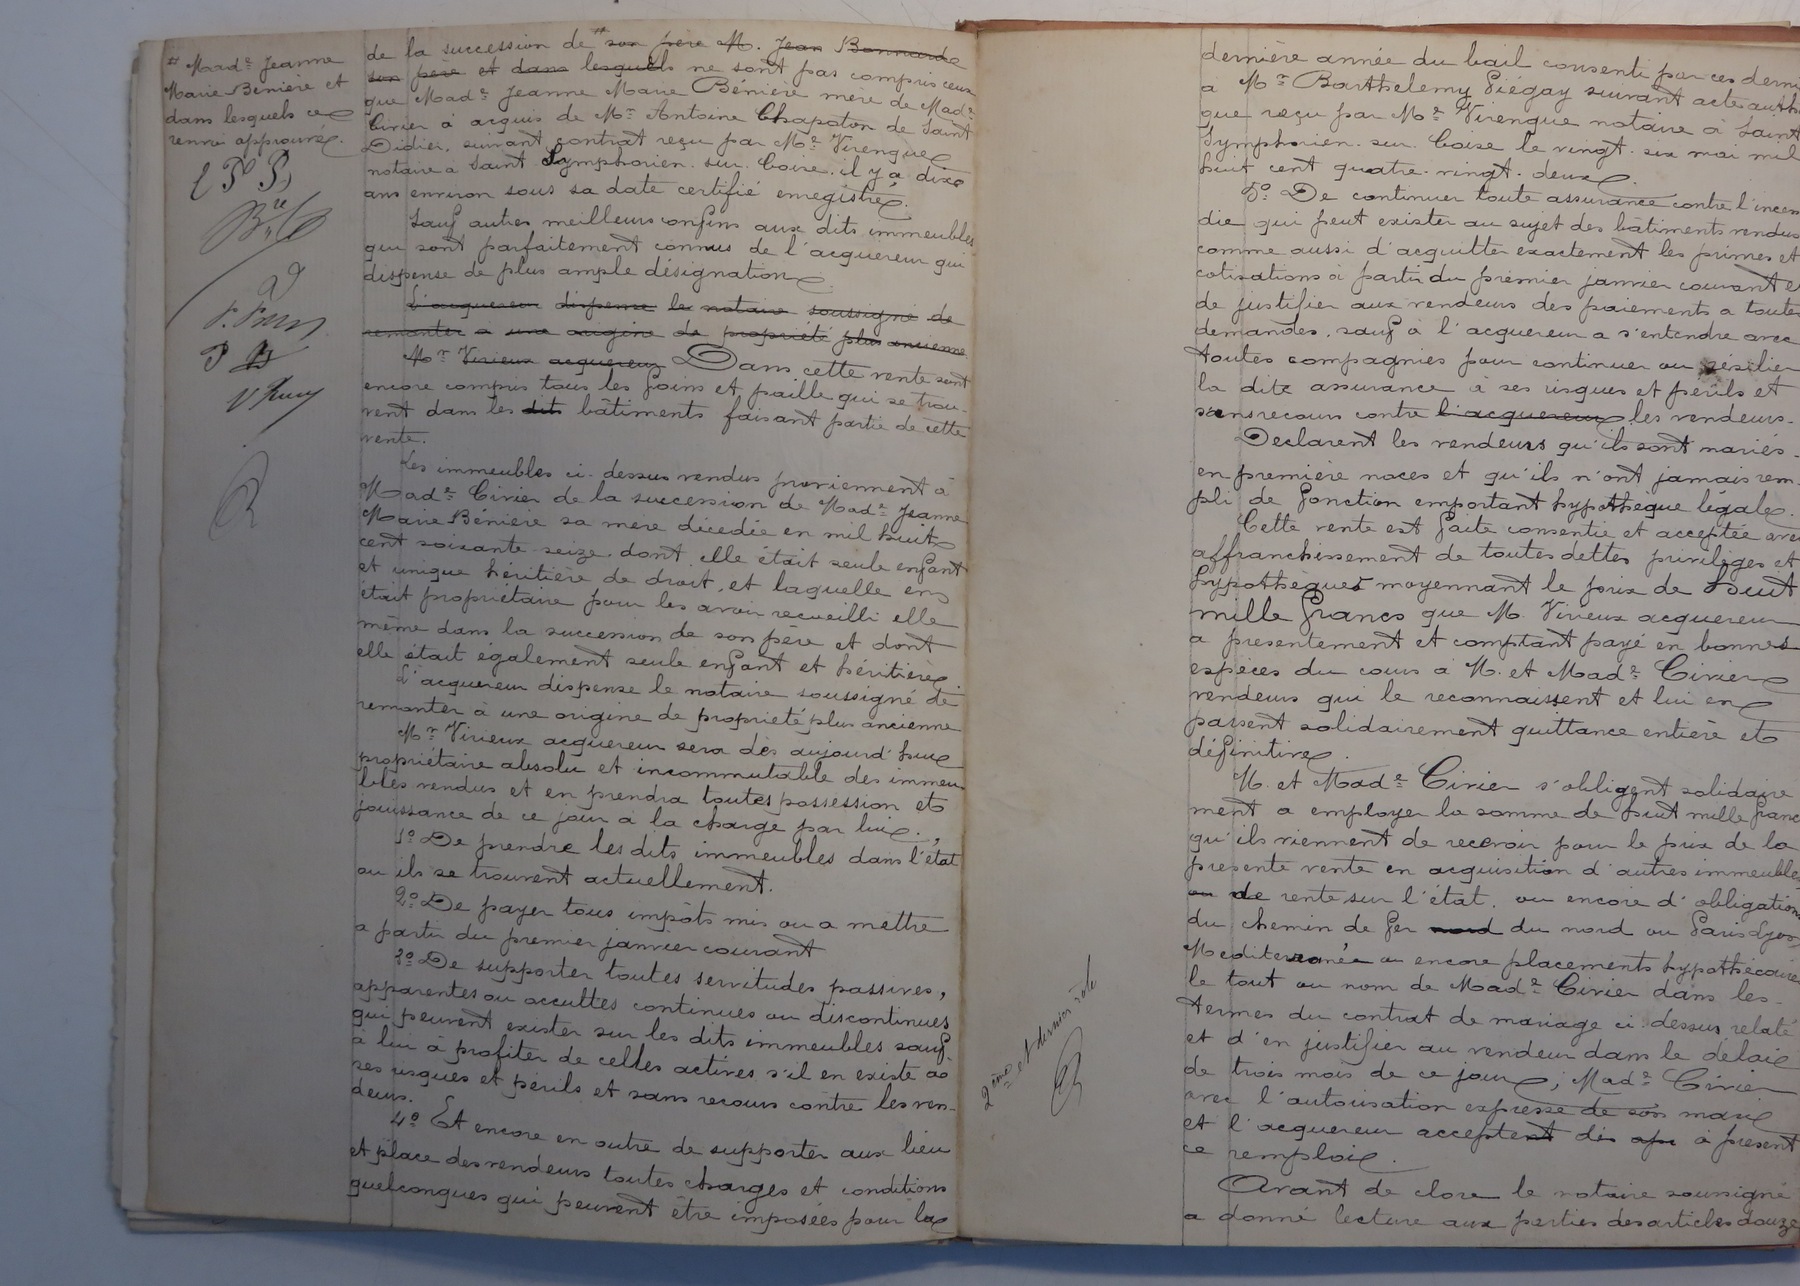 # Made Jeanne
Marie Bénière et
dans lesquels ce
renvoi approuvé.
de la succession de # son père M. Jean Bonnarde
son père et dans lesquels ne sont pas compris ceux
que Made Jeanne Marie Bénière mère de Made
Civier a acquis de Mr Antoine Chapoton de Saint
Didier, suivant contrat reçu par Me Virengue
notaire à Saint Symphorien. sur. Coise. il y a dix
ans environ sous sa date certifié enregistré.
Sauf autres meilleurs confins aux dits immeubles
qui sont parfaitement connus de l'acquereur qui
dispense de plus ample désignation
L'acquereur dispense le notaire soussigné de
remonter a une origine de propriété plus ancienne
Mr Virieux acquereur Dans cette vente sont
encore compris tous les foins et paille qui se trou-
vent dans les dits bâtiments faisant partie de cette
vente.
Les immeubles ci-dessus vendus proviennent à
Made Civier de la succession de Made Jeanne
Marie Bénière sa mère décédée en mil huit
cent soixante seize dont elle était seule enfant
et unique héritière de droit, et laquelle en
était propriétaire pour les avoir recueilli elle
même dans la succession de son père et dont
elle était également seule enfant et héritière.
L'acquereur dispense le notaire soussigné de
remonter à une origine de propriété plus ancienne
Mr Virieux acquereur sera dès aujourd'hui
propriétaire absolu et incommutable des immeu-
bles vendus et en prendra toutes possession et
jouissance de ce jour à la charge par lui.
1o De prendre les dits immeubles dans l'état
ou ils se trouvent actuellement.
2o De payer tous impôts mis ou a mettre
a partir du premier janvier courant
3o De supporter toutes servitudes passives,
apparentes ou occultes continues ou discontinues
qui peuvent exister sur les dits immeubles sauf
à lui à profiter de celles actives s'il en existe à
ses risques et périls et sans recours contre les ven-
deurs.
4o Et encore en outre de supporter aux lieu
et place des vendeurs toutes charges et conditions
quelconques qui peuvent être imposées pour la
2ème et dernier rôle
dernière année du bail consenti par ces derni
à Mr Barthelemy Piégay suivant acte auth
que reçu par Me Virengue notaire à Saint
Symphorien. sur. Coise le vingt. six mai mil
huit cent quatre. vingt. deux.
5o De continuer toute assurance contre l'incen
die qui peut exister au sujet des bâtiments vendus
comme aussi d'acquitter exactement les primes et
cotisations à partir du premier janvier courant et
de justifier aux vendeurs des paiements a toutes
demandes, sauf à l'acquereur a s'entendre avec
toutes compagnies pour continuer ou résilier
la dite assurance à ses risques et périls et
sans recours contre l'acquereur les vendeurs.
Declarent les vendeurs qu'ils sont mariés
en première noces et qu'ils n'ont jamais rem-
pli de fonction emportant hypothèque légale.
Cette vente est faite consentie et acceptée avec
affranchissement de toutes dettes privilèges et
hypothèques moyennant le prix de Huit
mille francs que M. Virieux acquereur
a presentement et comptant payé en bonnes
espèces du cours à M. et Made Civier
vendeurs qui le reconnaissent et lui en
passent solidairement quittance entière et
définitive.
M. et Made Civier s'obligent solidaire
ment a employer la somme de huit mille franc
qu'ils viennent de recevoir pour le prix de la
presente vente en acquisition d'autres immeubles
ou de rente sur l'état. ou encore d'obligations
du chemin de fer nord du nord ou Paris Lyon
Mediterranée ou encore placements hypothécaires
le tout au nom de Made Civier dans les
termes du contrat de mariage ci-dessus relaté
et d'en justifier au vendeur dans le délai
de trois mois de ce jour; Made Civier
avec l'autorisation expresse de son mari
et l'acquereur acceptent dès apr à présent
ce remploi.
Avant de clore le notaire soussigné
a donné lecture aux parties des articles douze